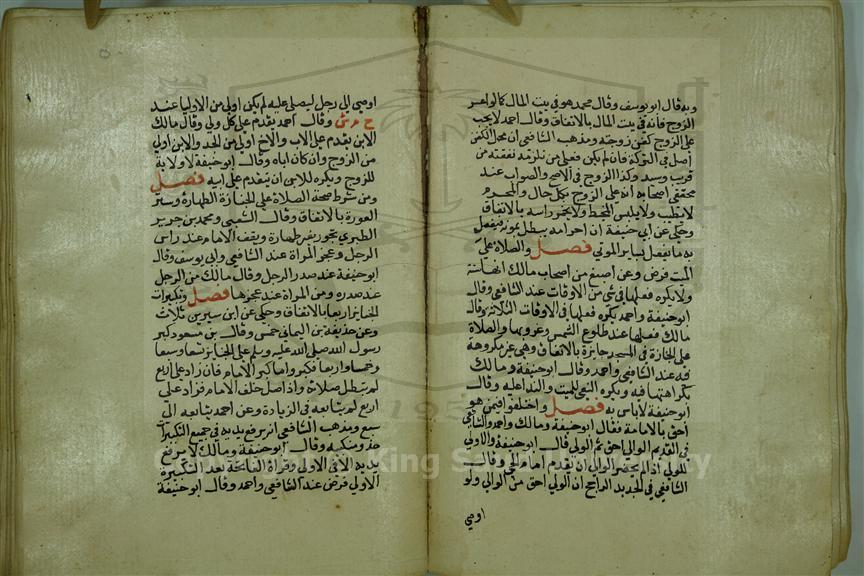 وبه قال ابو يوسف وقال محمد هو في بيت المال كما لو اعسر
الزوج فانه في بيت المال بالاتفاق وقال احمد لا يجب
على الزوج كفن زوجته ومذهب الشافعي ان محل الكفن
اصل في التركة فان لم يكن فعلى من تلزمه نفقته من
قريب وسيد وكذا الزوج في الاصح والصواب عند
محققي اصحابه انه على الزوج بكل حال والمحرم
لا يطيب ولا يلبس المخيط ولا يخمر راسه بالاتفاق
وحكي عن ابي حنيفة ان احرامه يبطل بموته فيفعل
به ما يفعل بساير الموتى فصل والصلاة على
الميت فرض وعن اصبغ من اصحاب مالك انها سنة
ولا يكره فعلها في شئ من الاوقات عند الشافعي وقال
ابو حنيفة واحمد يكره فعلها في الاوقات الثلاثة وقال
مالك فعلها عند طلوع الشمس وغروبها والصلاة
على الجنازة في المسجد جايزة بالاتفاق وهي غير مكروهة
فيه عند الشافعي واحمد وقال ابو حنيفة ومالك
بكراهتها فيه ويكره النعي للميت والنداء له وقال
ابو حنيفة لا باس به فصل واختلفوا فيمن هو
احق بالامامة فقال ابو حنيفة ومالك واحمد والشافعي
في القديم الوالي احق ثم الولي قال ابو حنيفة والاولى
للولي اذا لم يحضر الوالي ان يقدم امام الحي وقال
الشافعي في الجديد الراجح ان الولي احق من الوالي ولو
اوصي
اوصى الى رجل ليصلي عليه لم يكن اولى من الاوليا عند
ح م ش وقال احمد يقدم على كل ولي وقال مالك
الابن يقدم على الاب والاخ اولى من الجد والابن اولى
من الزوج وان كان اباه وقال ابو حنيفة لا ولاية
للزوج ويكره للابن ان يتقدم على ابيه فصل
ومن شرط صحة الصلاة على الجنازة الطهارة وستر
العورة بالاتفاق وقال الشعبي ومحمد بن جرير
الطبري تجوز بغير طهارة ويقف الامام عند راس
الرجل وعجز المراة عند الشافعي وابي يوسف وقال
ابو حنيفة عند صدر الرجل وقال مالك من الرجل
عند صدره ومن المراة عند عجزها فصل وتكبيرات
الجنايز اربعا بالاتفاق وحكي عن ابن سيرين ثلاث
وعن حذيفة بن اليماني خمس وقال بن مسعود كبر
رسول الله صلى الله عليه وسلم على الجنايز تسعا وسبعا
وخمسا واربعا فكبروا ما كبر الامام فان زاد على اربع
لم تبطل صلاته واذا صلى خلف الامام فزاد على
اربع لم يتابعه في الزيادة وعن احمد يتابعه الى
سبع ومذهب الشافعي انه يرفع يديه في جميع التكبيرات
حذو منكبيه وقال ابو حنيفة ومالك لا يرفع
يديه الا في الاولى وقراة الفاتحة بعد التكبيرة
الاولى فرض عند الشافعي واحمد وقال ابو حنيفة